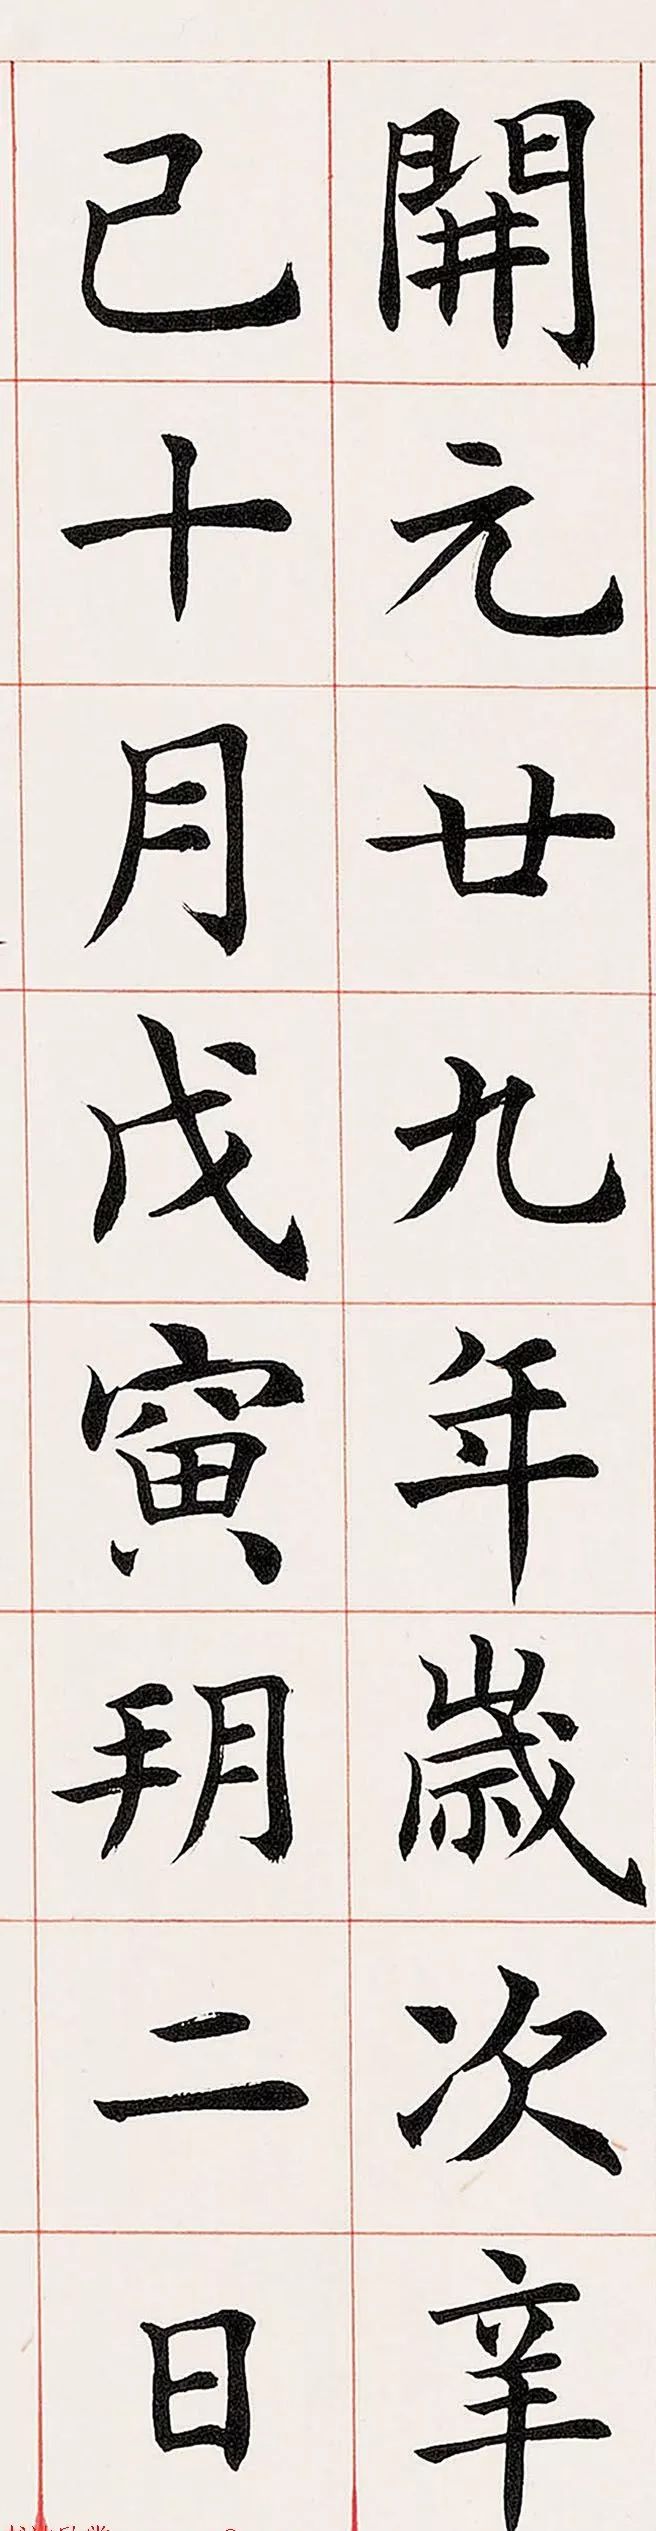 開元廿九年歲次辛
巳十月戊寅朔二日